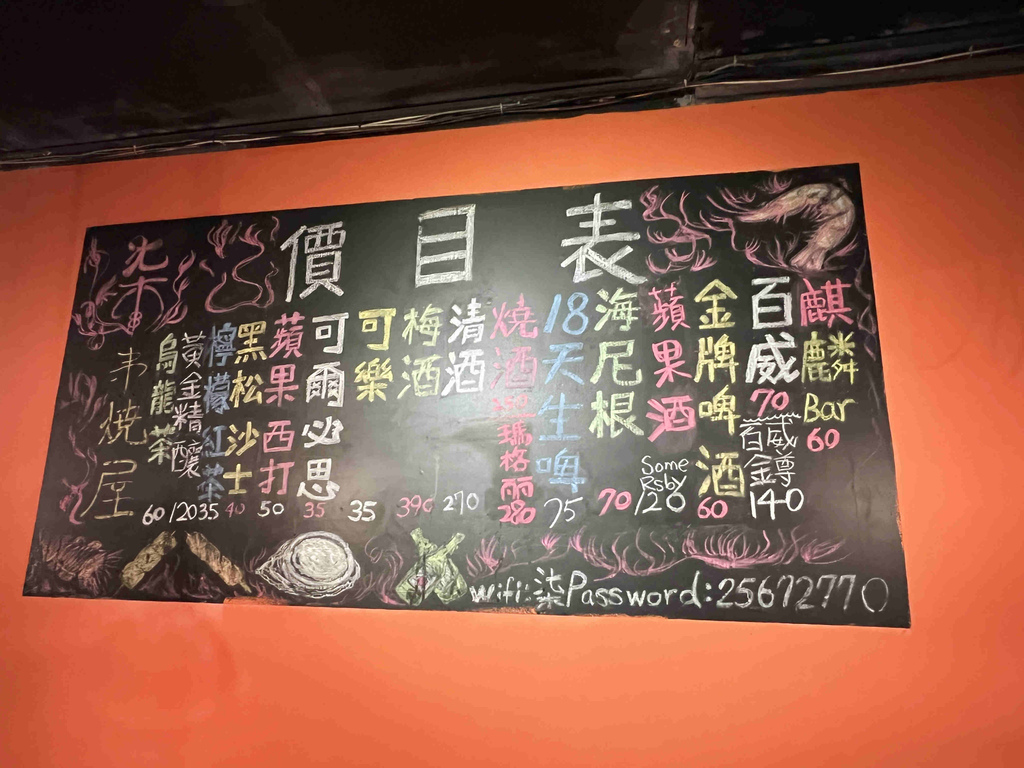 價目表
麒麟Bar 60
百威 70
百威金尊 140
金牌啤酒 60
蘋果酒 Some Rsby 120
海尼根 70
18天生啤 75
燒酒瑪格麗 280
清酒 270
梅酒 390
可樂 35
可爾必思 35
蘋果西打 50
黑松沙士 40
檸檬紅茶 35
黃金精釀 120
烏龍茶 60
柒串燒屋
wifi:柒Password:256727770